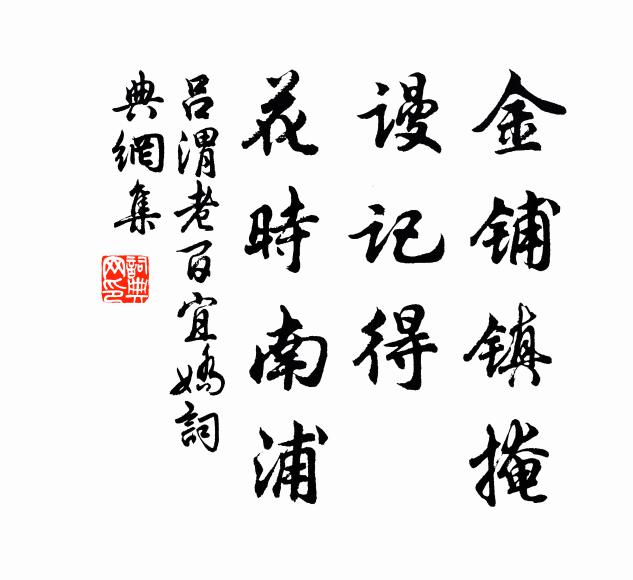 金铺镇掩
谩记得
花時南浦
吕渭老百宜嬌詞
典網集
詞典
网印